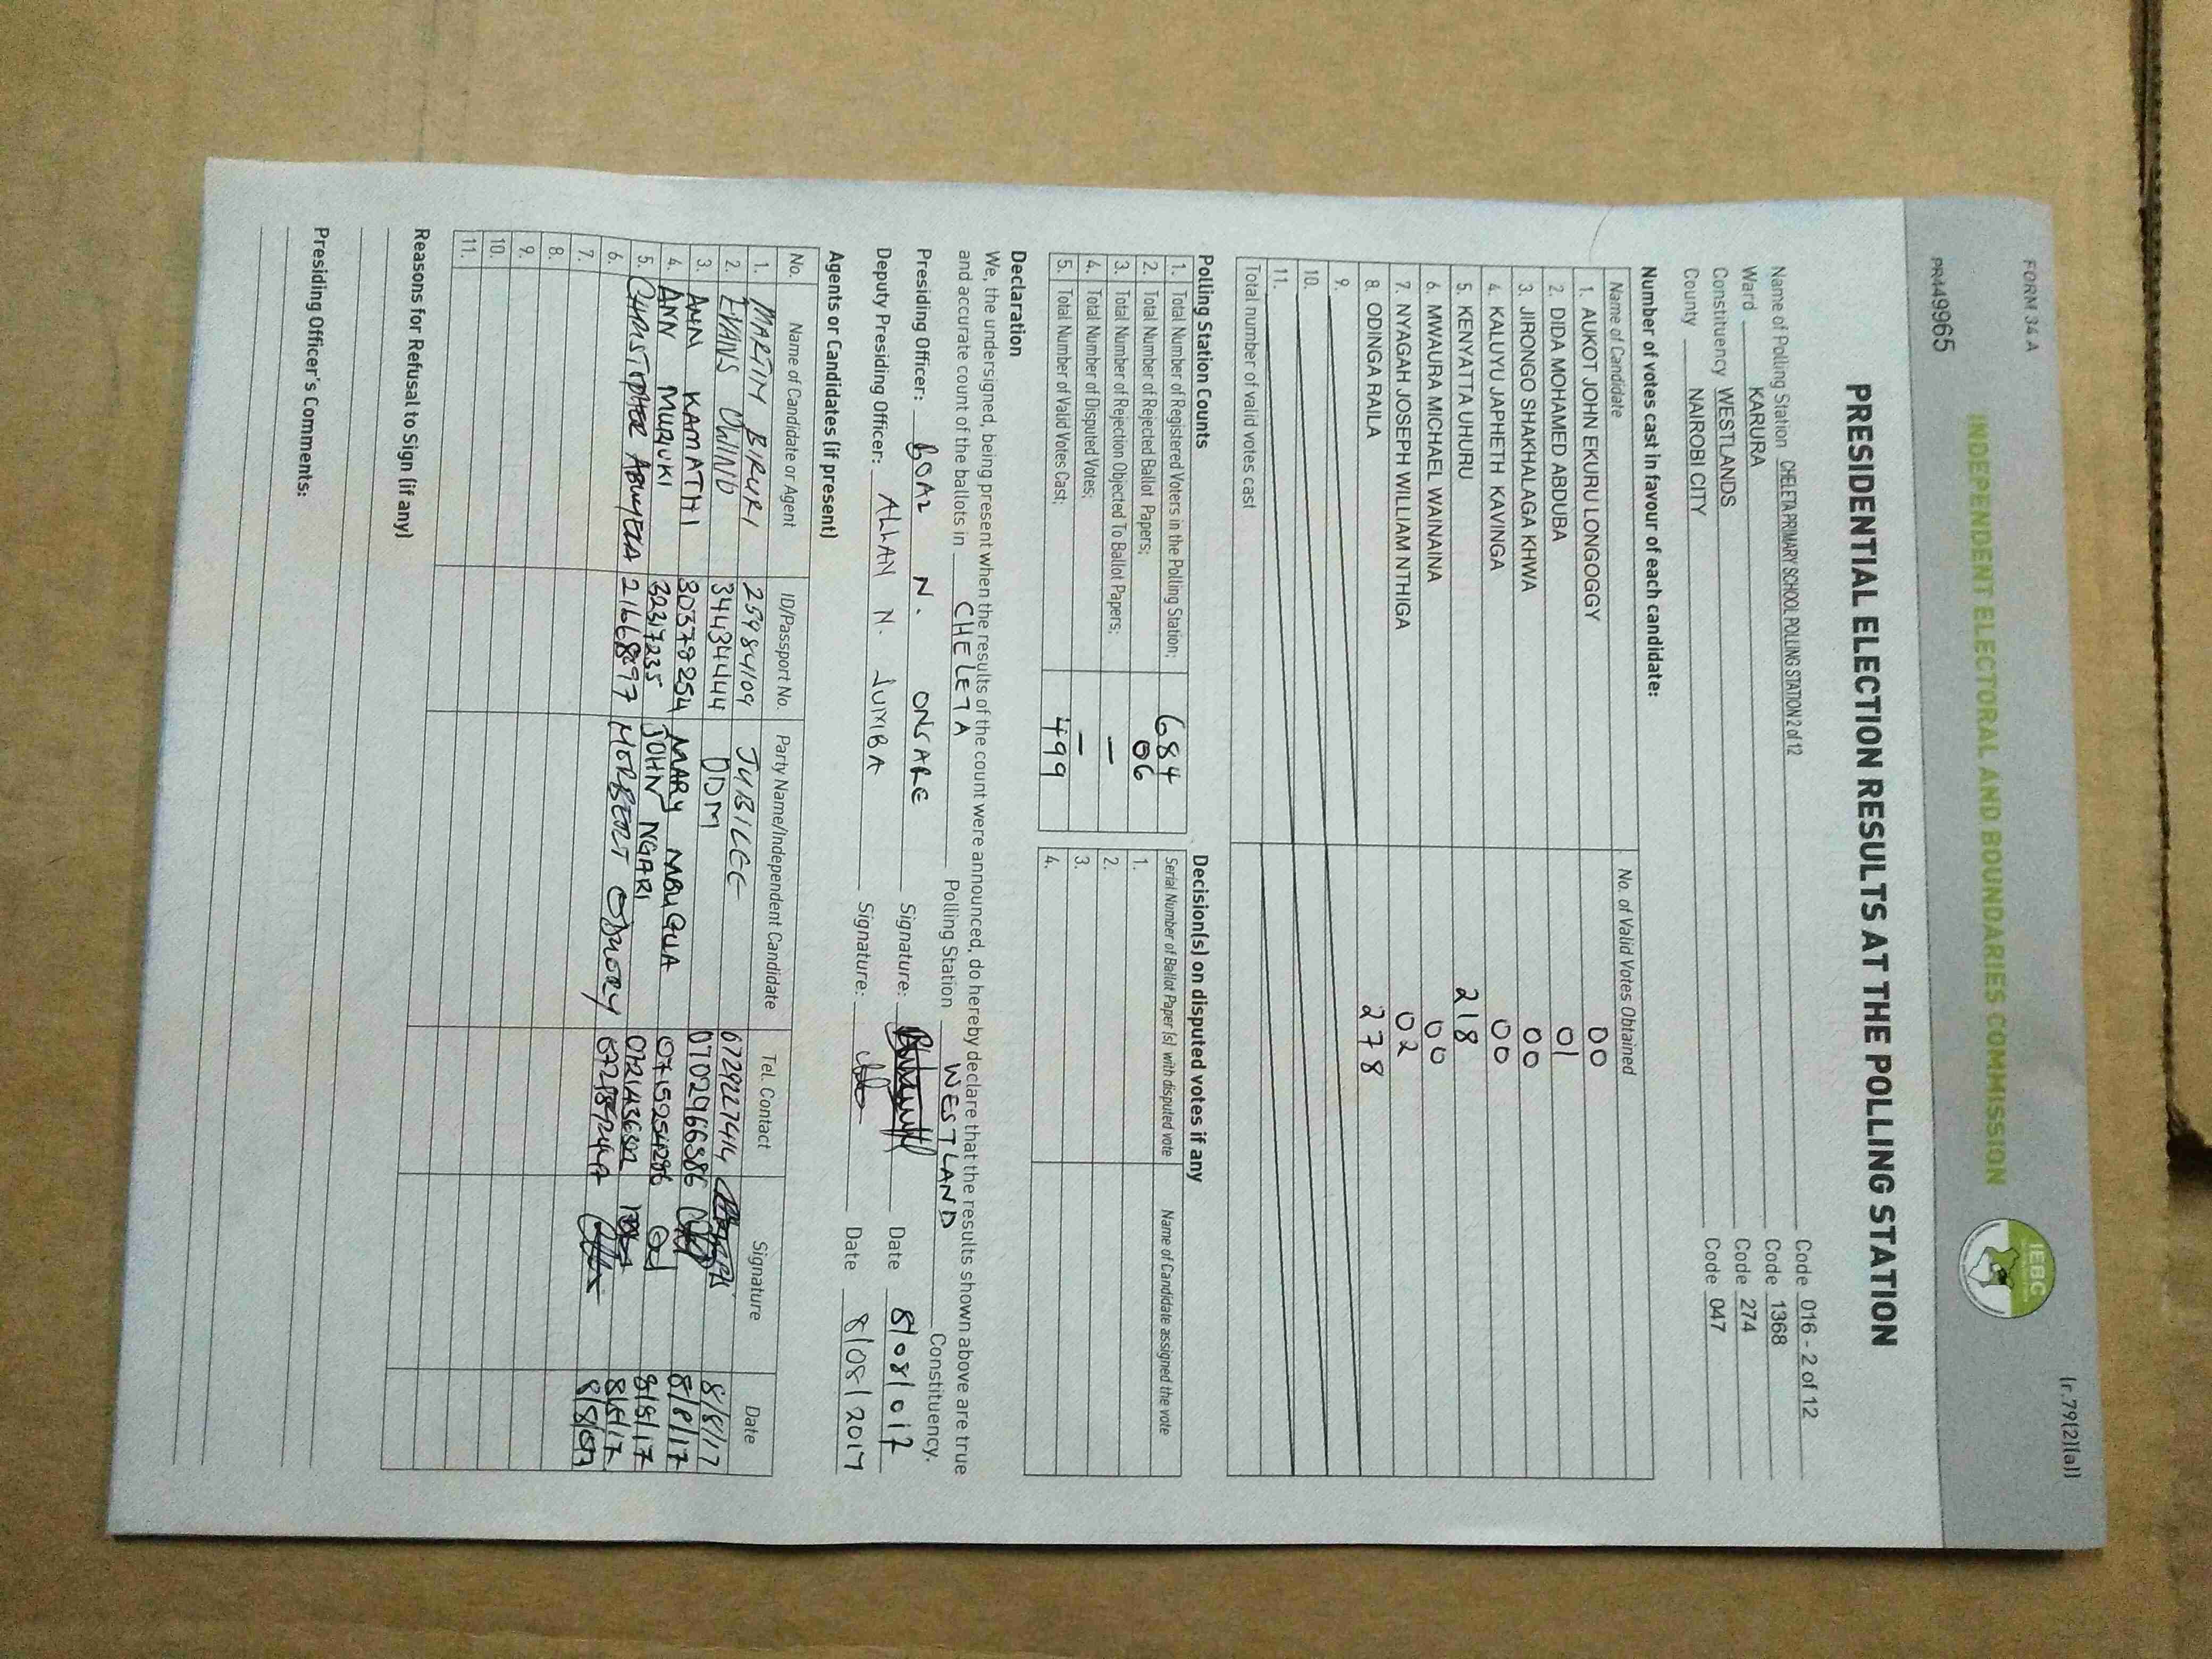 FORM 34 A
[r.79(2)(a)]
INDEPENDENT ELECTORAL AND BOUNDARIES COMMISSION
IEBC
PR449965
PRESIDENTIAL ELECTION RESULTS AT THE POLLING STATION
Name of Polling Station CHELETA PRIMARY SCHOOL POLLING STATION 2 of 12 Code 016 - 2 of 12
Ward KARURA Code 1368
Constituency WESTLANDS Code 274
County NAIROBI CITY Code 047
Number of votes cast in favour of each candidate:
Name of Candidate No. of Valid Votes Obtained
1. AUKOT JOHN EKURU LONGOGGY 00
2. DIDA MOHAMED ABDUBA 01
3. JIRONGO SHAKHALAGA KHWA 00
4. KALUYU JAPHETH KAVINGA 00
5. KENYATTA UHURU 218
6. MWAURA MICHAEL WAINAINA 00
7. NYAGAH JOSEPH WILLIAM NTHIGA 02
8. ODINGA RAILA 278
9.
10.
11.
Total number of valid votes cast
Polling Station Counts
1. Total Number of Registered Voters in the Polling Station; 684
2. Total Number of Rejected Ballot Papers; 06
3. Total Number of Rejection Objected To Ballot Papers; –
4. Total Number of Disputed Votes; –
5. Total Number of Valid Votes Cast; 499
Decision(s) on disputed votes if any
Serial Number of Ballot Paper (s) with disputed vote Name of Candidate assigned the vote
1.
2.
3.
4.
Declaration
We, the undersigned, being present when the results of the count were announced, do hereby declare that the results shown above are true
and accurate count of the ballots in CHELETA Polling Station WESTLAND Constituency.
Presiding Officer: BOAZ N. ONSARE Signature: Date 8/08/017
Deputy Presiding Officer: ALLAN N. JUMBA Signature: Date 8/08/2017
Agents or Candidates (if present)
No. Name of Candidate or Agent ID/Passport No. Party Name/Independent Candidate Tel. Contact Signature Date
1. MARTIM BIRURI 25984109 JUBILEE 0729227414 8/8/17
2. EVANS OWINO 34434444 ODM 0702966386 8/8/17
3. ANN KAMATHI 30378254 MARY MBUGUA 8/8/17
4. ANN MURIUKI 32317235 JOHN NGARI 8/8/17
5. CHRISTOPHER 21668897
6.
7.
8.
9.
10.
11.
Reasons for Refusal to Sign (if any)
Presiding Officer's Comments: